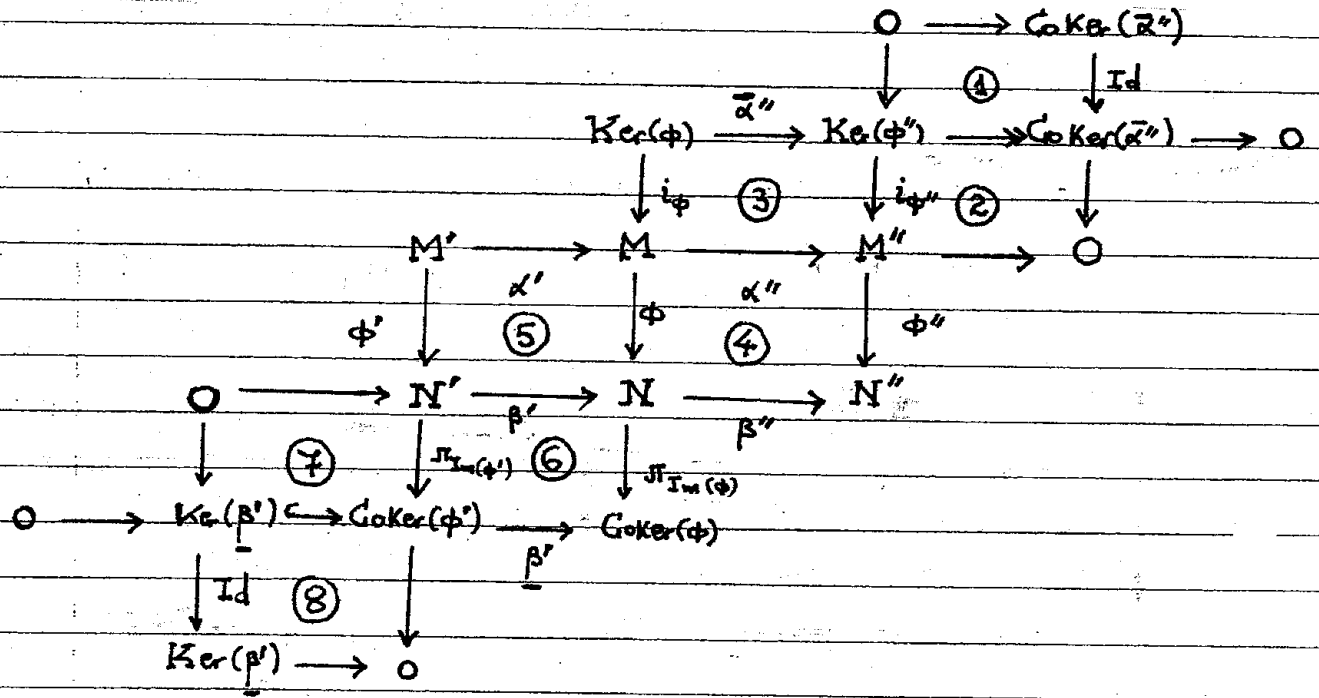 O ⟶ CoKer(ᾱ")
① Id
Ker(ϕ) ᾱ" ⟶ Ker(ϕ") ↠ CoKer(ᾱ") ⟶ O
i_ϕ ③ i_ϕ" ②
M' ⟶ M ⟶ M" ⟶ O
α' α"
ϕ' ⑤ ϕ ④ ϕ"
O ⟶ N' ⟶ N ⟶ N"
β' β"
⑦ π_Im(ϕ') ⑥ π_Im(ϕ)
O ⟶ Ker(β̲') ↪ CoKer(ϕ') ⟶ CoKer(ϕ)
β̲'
Id ⑧
Ker(β̲') ⟶ O